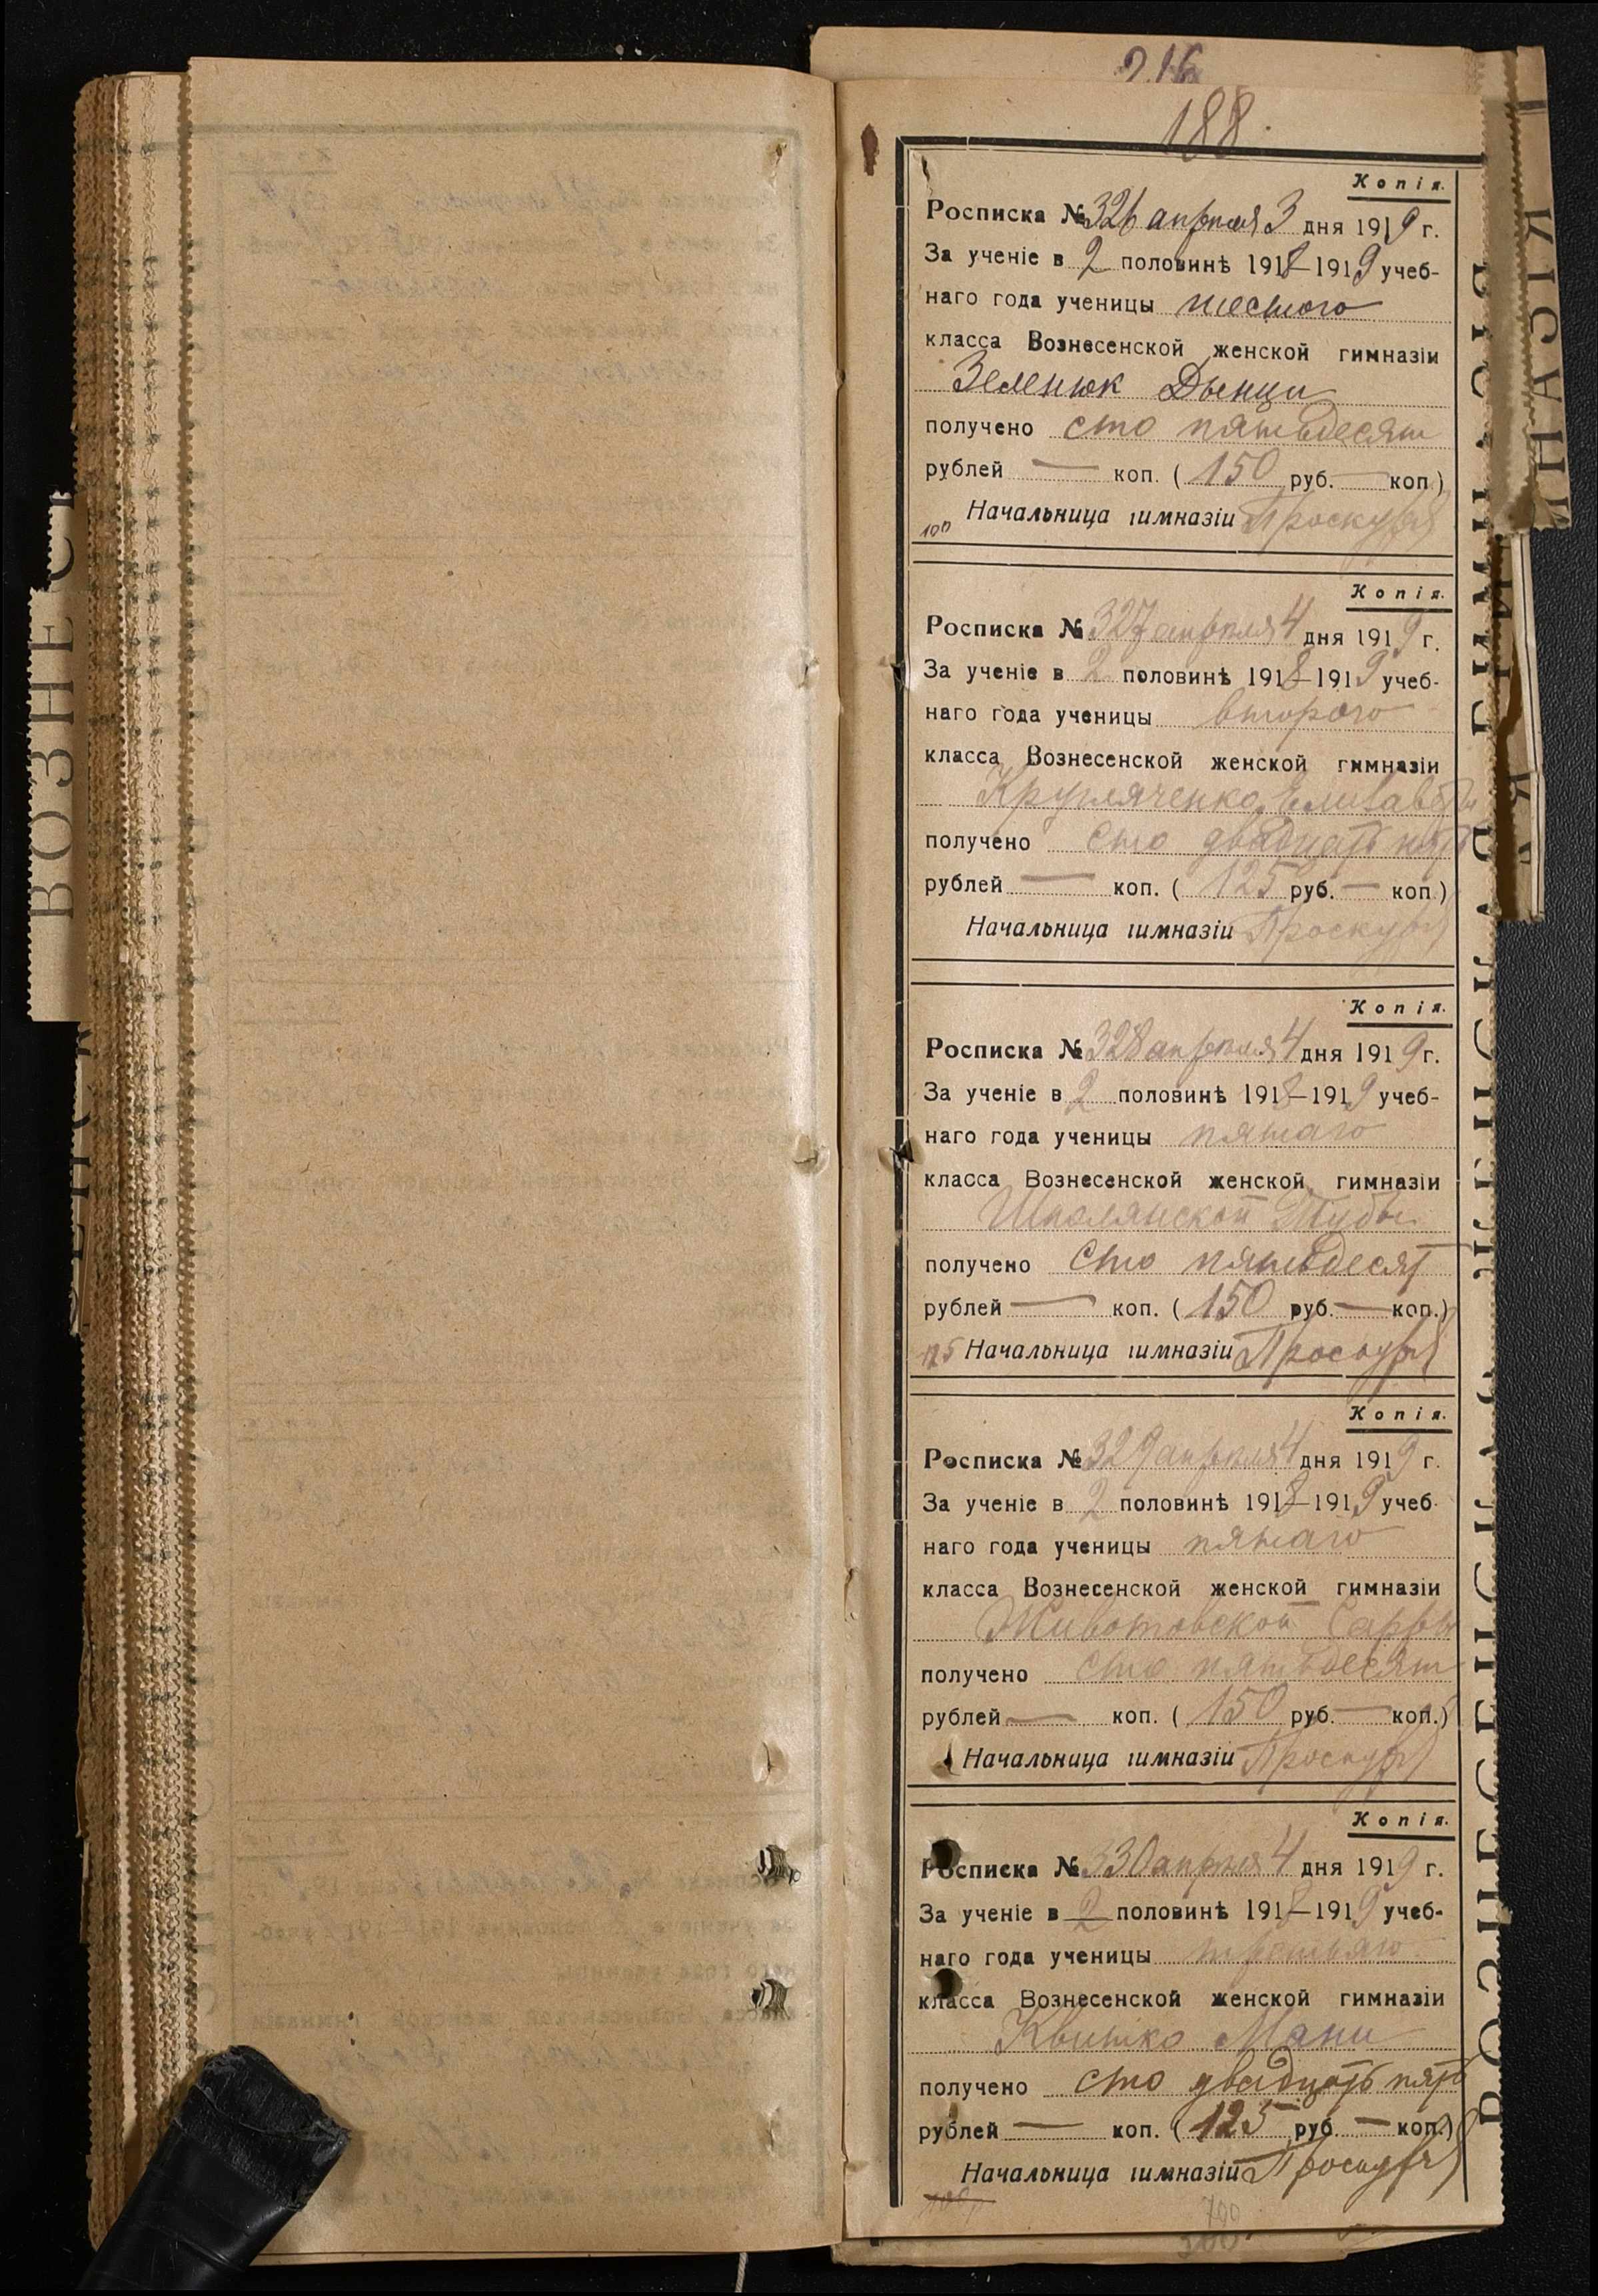 216
188.
Копія.
Росписка № 326 апрѣля 3 дня 1919 г.
За ученіе в 2 половинѣ 1918–1919 учеб-
наго года ученицы шестого
класса Вознесенской женской гимназіи
Зеленюк
получено сто пятьдесят
рублей — коп. (150 руб. — коп.)
Начальница гимназіи Проскур
100
Копія.
Росписка № 327 апрѣля 4 дня 1919 г.
За ученіе в 2 половинѣ 1918–1919 учеб-
наго года ученицы второго
класса Вознесенской женской гимназіи
Кругляченко Елизаветы
получено сто двадцать пять
рублей — коп. (125 руб. — коп.)
Начальница гимназіи Проскур
Копія.
Росписка № 328 апрѣля 4 дня 1919 г.
За ученіе в 2 половинѣ 1918–1919 учеб-
наго года ученицы пятаго
класса Вознесенской женской гимназіи
Шполянской
получено сто пятьдесят
рублей — коп. (150 руб. — коп.)
125 Начальница гимназіи Проскур
Копія.
Росписка № 329 апрѣля 4 дня 1919 г.
За ученіе в 2 половинѣ 1918–1919 учеб-
наго года ученицы пятаго
класса Вознесенской женской гимназіи
Животовской Сарры
получено сто пятьдесят
рублей — коп. (150 руб. — коп.)
Начальница гимназіи Проскур
Копія.
Росписка № 330 апрѣля 4 дня 1919 г.
За ученіе в 2 половинѣ 1918–1919 учеб-
наго года ученицы третьяго
класса Вознесенской женской гимназіи
Квитко Мани
получено сто двадцать пять
рублей — коп. (125 руб. — коп.)
Начальница гимназіи Проскур
700
ВОЗНЕС